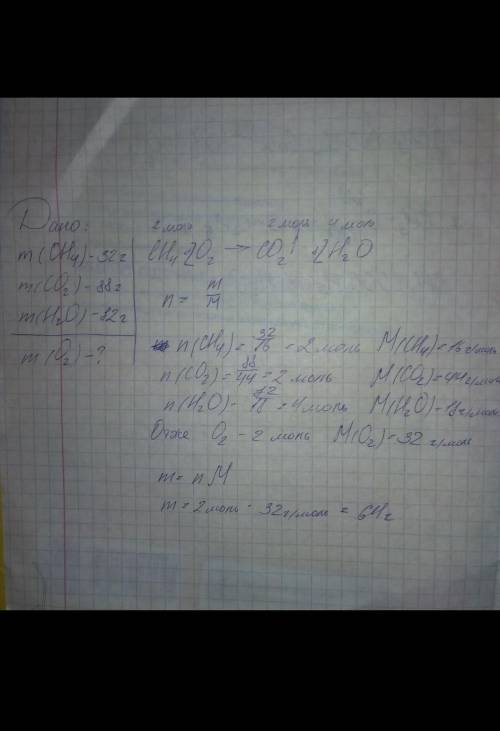 Дано:
m(CH4) - 32г
m(CO2) - 88г
m(H2O) - 72г
m(O2) - ?
2 моль 2 моль 4 моль
CH4 2O2 → CO2↑ 2H2O
n = m/M
n(CH4) = 32/16 = 2 моль M(CH4) = 16 г/моль
n(CO2) = 88/44 = 2 моль M(CO2) = 44 г/моль
n(H2O) - 72/18 = 4 моль M(H2O) - 18 г/моль
Отже O2 - 2 моль M(O2) = 32 г/моль
m = n M
m = 2 моль · 32 г/моль = 64г